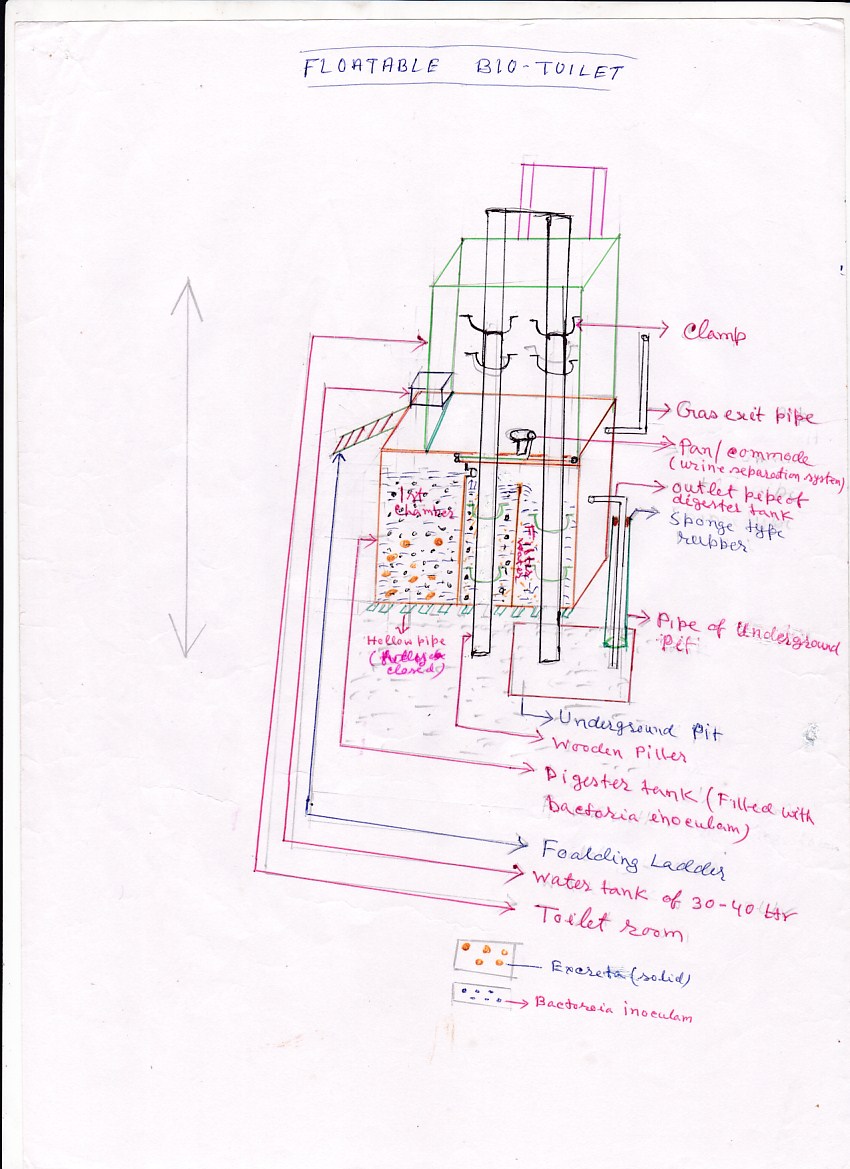 FLOATABLE BIO-TOILET
Clamp
Gas exit pipe
Pan/commode
(urine separation system)
outlet pipe of
digester tank
Sponge type
rubber
1st
chamber
Water
Pipe of Underground
Pit
Hollow pipe
closed)
Underground Pit
Wooden Piller
Digester tank (Filled with
bactoria inoculam)
Foalding Ladder
Water tank of 30-40 ltr
Toilet room
Excreta (solid)
Bactoria inoculam